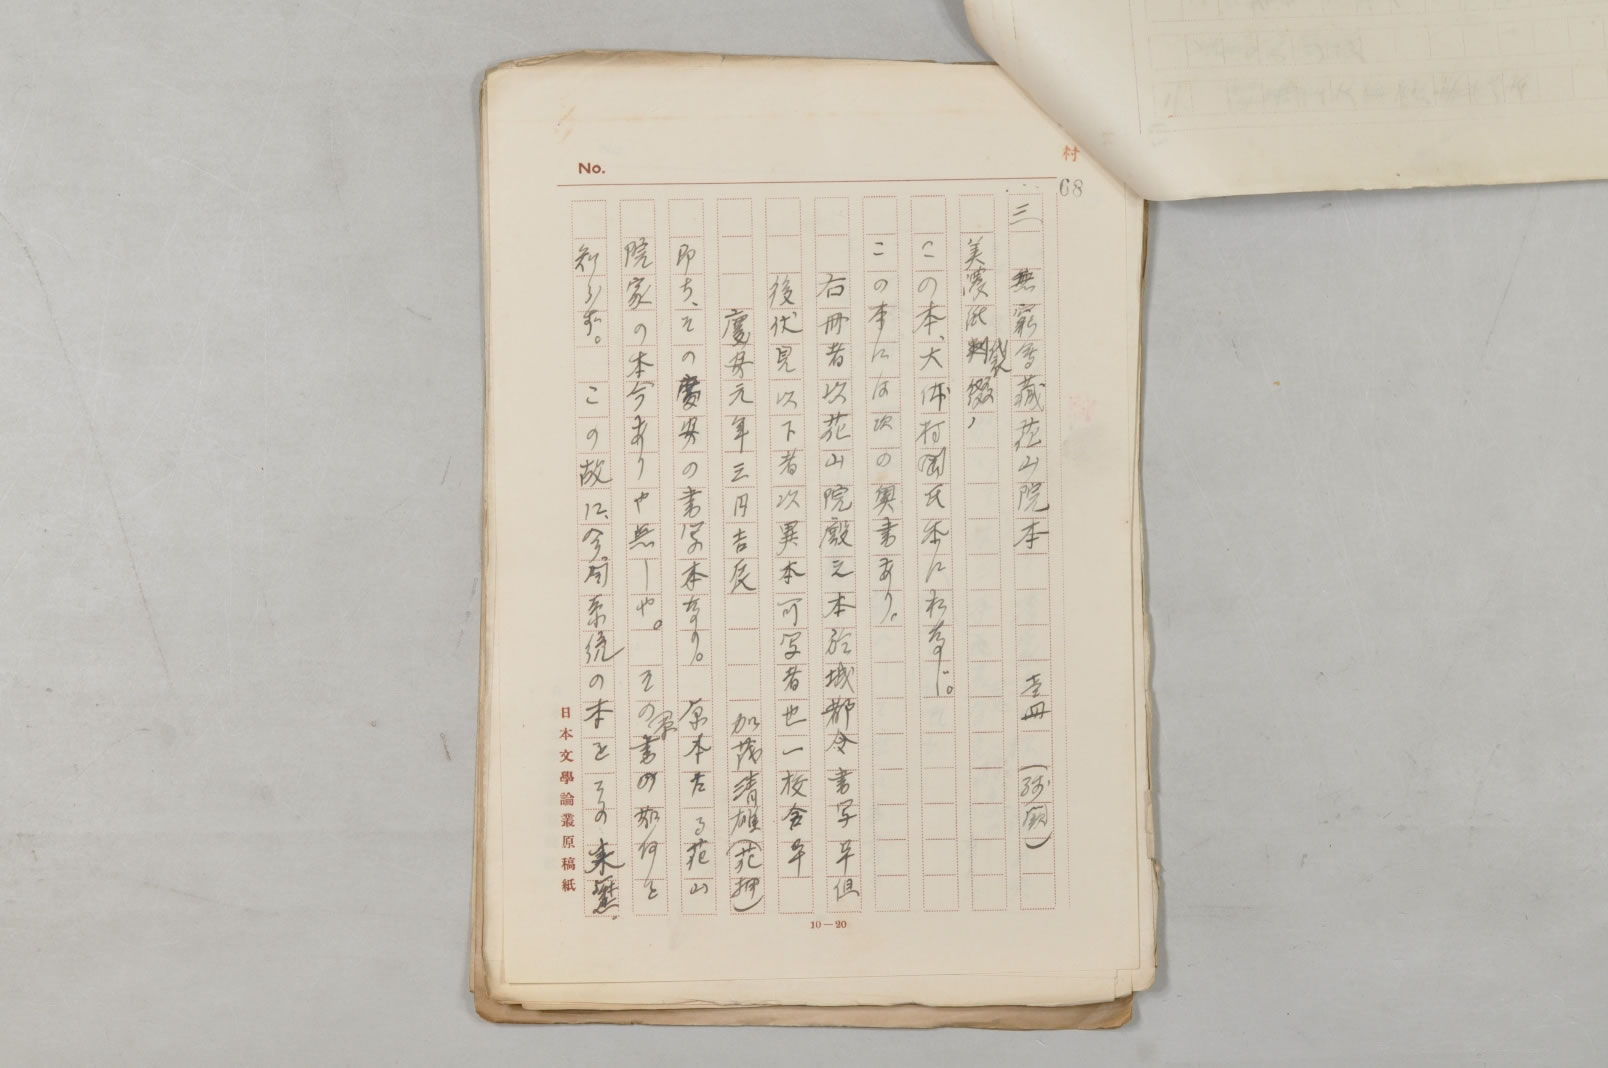 No.
村
68
三 無窮会蔵花山院本 壱冊 (残闕)
美濃紙判袋綴、
この本、大体村岡氏本に相等し。
この本には次の奥書あり。
右冊者以花山院殿之本於城都令書写畢但
後伏見以下者次異本可写者也一校合畢
慶安元年三月吉辰 加茂清雄(花押)
即ち、その慶安の書写本なり。 原本たる花山
院家の本今ありや無しや。 その書の都何を
知らず。 この故に、今、同系統の本をこの
日本文學論叢原稿紙
10—20